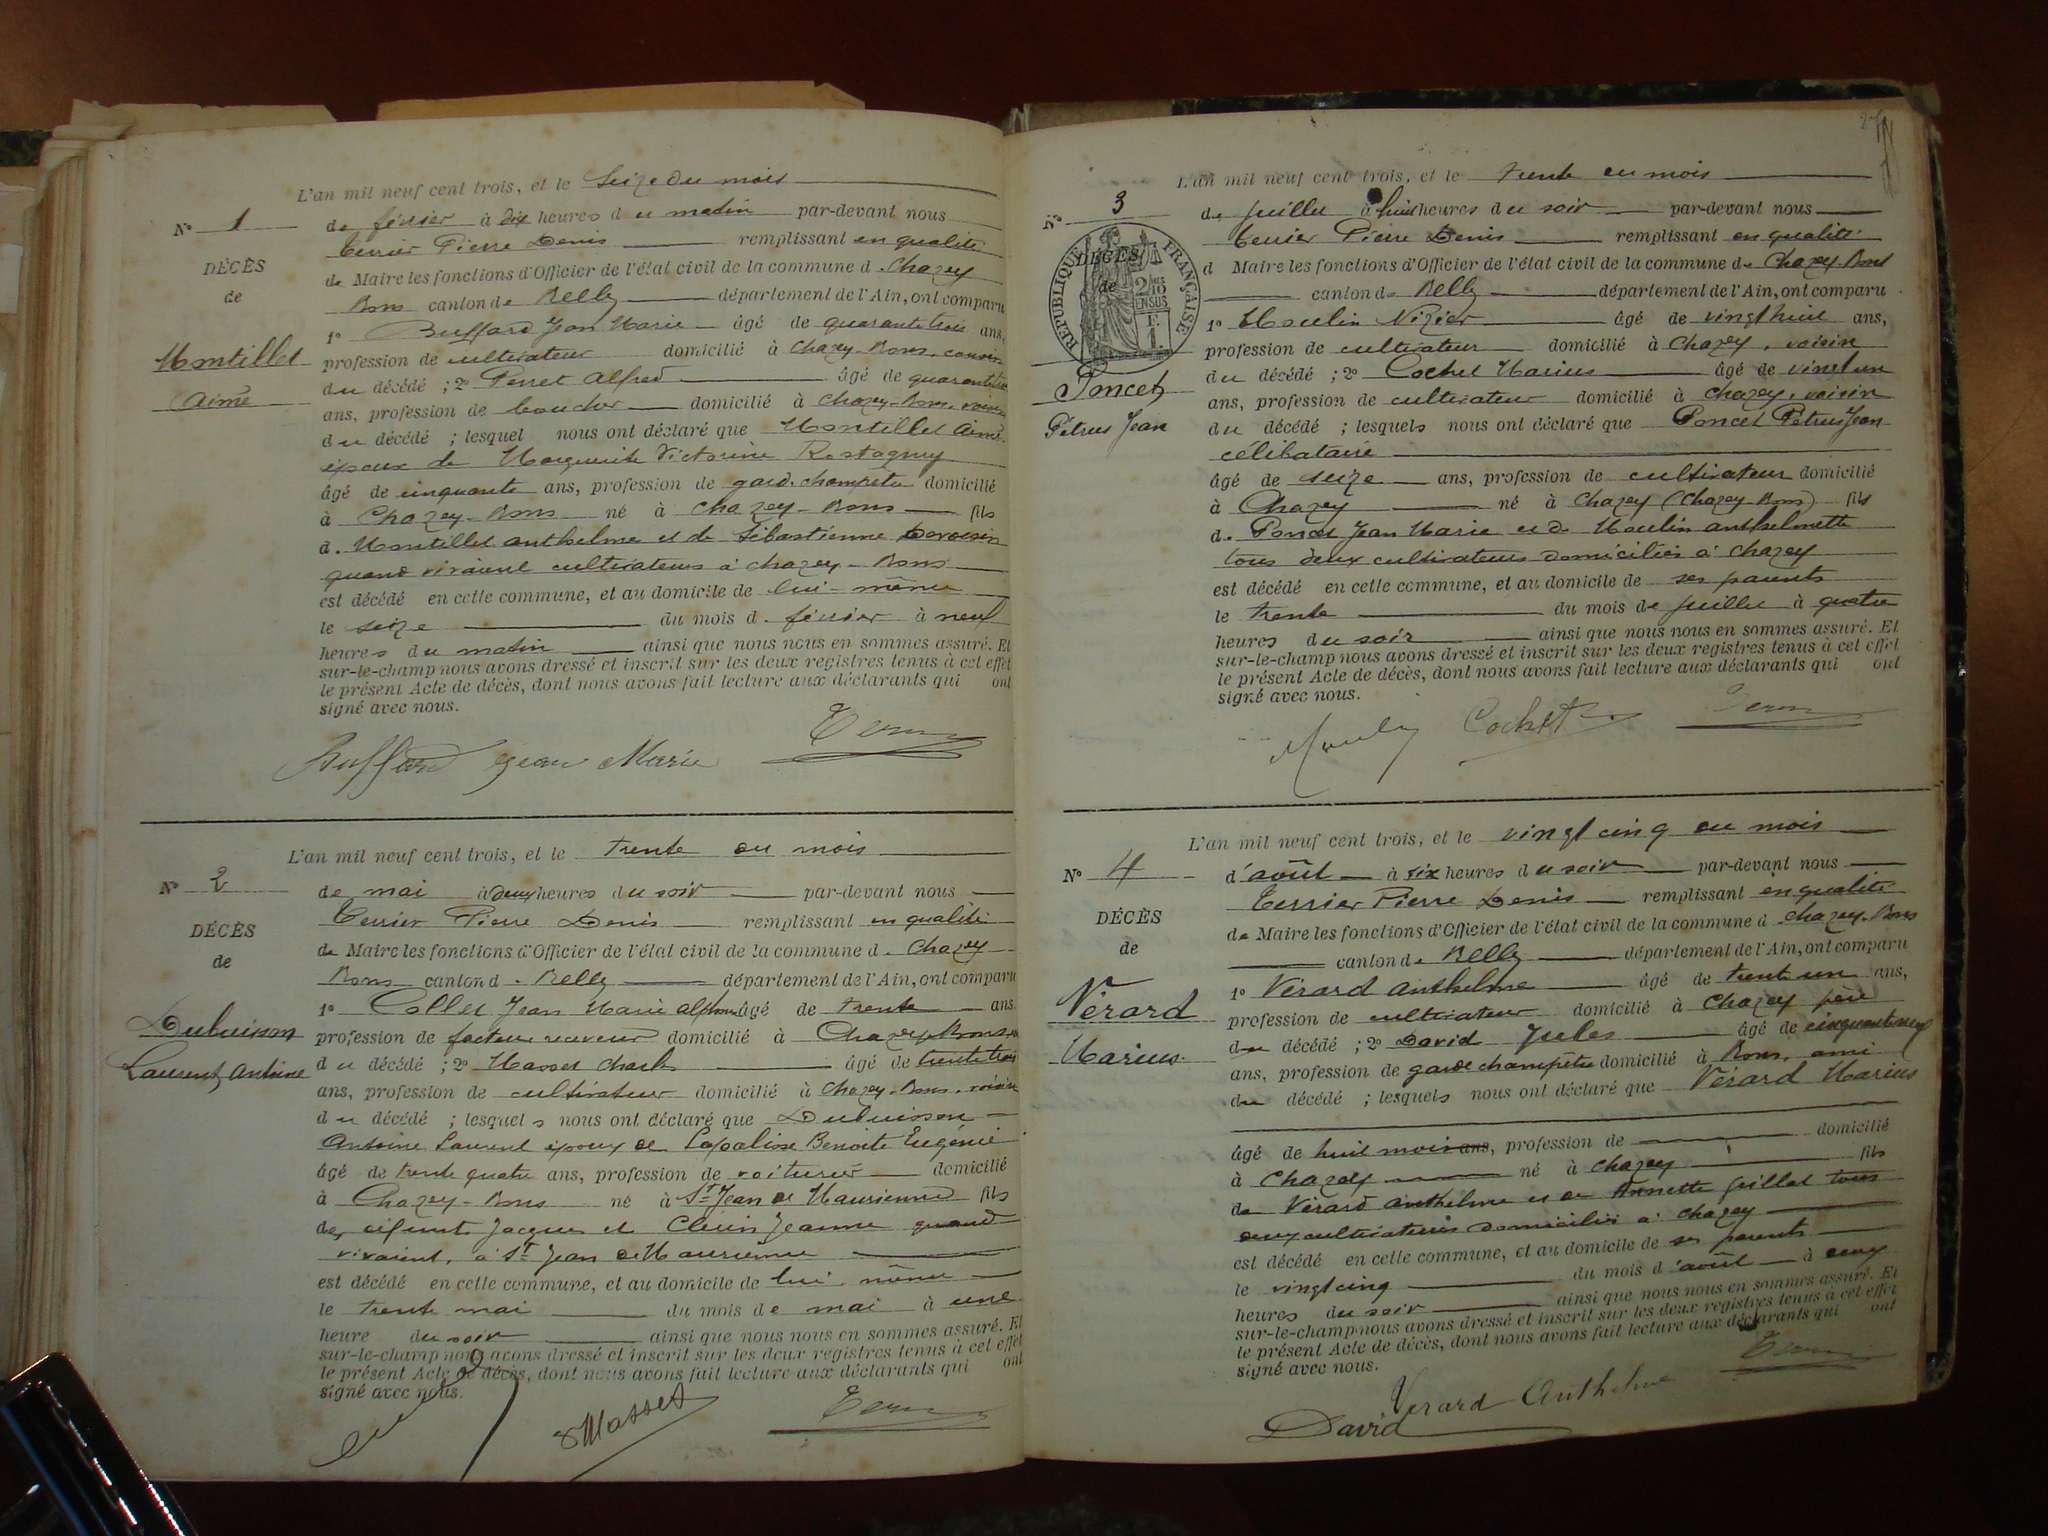 L'an mil neuf cent trois, et le seize du mois
N° 1
de février à dix heures du matin par-devant nous
Terrier Pierre Denis remplissant en qualité
DÉCÈS
de Maire les fonctions d'Officier de l'état civil de la commune d. Chazey
de
Bons canton de Belley département de l'Ain, ont comparu
1° Buffard Jean Marie âgé de quarante trois ans,
Montillet
profession de cultivateur domicilié à Chazey-Bons, cousin
Aimé
du décédé ; 2° Perret Alfred âgé de
ans, profession de boucher domicilié à Chazey-Bons, voisin
du décédé ; lesquel nous ont déclaré que Montillet Aimé
époux de Marguerite Victorine Rostagny
âgé de cinquante ans, profession de garde champêtre domicilié
à Chazey-Bons né à Chazey-Bons fils
d. Montillet Anthelme et de Sébastienne
quand vivaient cultivateurs à Chazey-Bons
est décédé en cette commune, et au domicile de lui-même
le seize du mois d. février à neuf
heures du matin ainsi que nous nous en sommes assuré. Et
sur-le-champ nous avons dressé et inscrit sur les deux registres tenus à cet effet
le présent Acte de décès, dont nous avons fait lecture aux déclarants qui ont
signé avec nous.
Buffard Jean Marie
L'an mil neuf cent trois, et le trente du mois
N° 2
de mai à deux heures du soir par-devant nous
Terrier Pierre Denis remplissant en qualité
DÉCÈS
de Maire les fonctions d'Officier de l'état civil de la commune d. Chazey
de
Bons canton d. Belley département de l'Ain, ont comparu
1° Collet Jean Marie Alphonse âgé de trente ans
Dubuisson
profession de facteur receveur domicilié à Chazey-Bons
Laurent Antoine
du décédé ; 2° Masset Charles âgé de trente trois
ans, profession de cultivateur domicilié à Chazey-Bons, voisin
du décédé ; lesquels nous ont déclaré que Dubuisson
Antoine Laurent époux de Lapalisse Benoite Eugénie
âgé de trente quatre ans, profession de voiturier domicilié
à Chazey-Bons né à St Jean de Maurienne fils
de défunt Jacques et Jeanne quand
vivaient, à St Jean de Maurienne
est décédé en cette commune, et au domicile de lui-même
le trente mai du mois de mai à une
heure du soir ainsi que nous nous en sommes assuré. Et
sur-le-champ nous avons dressé et inscrit sur les deux registres tenus à cet effet
le présent Acte de décès, dont nous avons fait lecture aux déclarants qui ont
signé avec nous.
Masset
L'an mil neuf cent trois, et le trente du mois
N° 3
de juillet à huit heures du soir par-devant nous
Terrier Pierre Denis remplissant en qualité
DÉCÈS
d Maire les fonctions d'Officier de l'état civil de la commune de Chazey-Bons
de
RÉPUBLIQUE FRANÇAISE
canton de Belley département de l'Ain, ont comparu
1° Moulin Nizier âgé de vingt huit ans,
profession de cultivateur domicilié à Chazey, voisin
Poncet
du décédé ; 2° Cochet Marius âgé de vingt un
ans, profession de cultivateur domicilié à Chazey, voisin
Pétrus Jean
du décédé ; lesquels nous ont déclaré que Poncet Pétrus Jean
célibataire
âgé de seize ans, profession de cultivateur domicilié
à Chazey né à Chazey (Chazey-Bons) fils
d. Poncet Jean Marie et de Moulin Anthelmette
tous deux cultivateurs domiciliés à Chazey
est décédé en cette commune, et au domicile de ses parents
le trente du mois de juillet à quatre
heures du soir ainsi que nous nous en sommes assuré. Et
sur-le-champ nous avons dressé et inscrit sur les deux registres tenus à cet effet
le présent Acte de décès, dont nous avons fait lecture aux déclarants qui ont
signé avec nous.
Cochet
L'an mil neuf cent trois, et le vingt cinq du mois
N° 4
d'août à six heures du soir par-devant nous
Terrier Pierre Denis remplissant en qualité
DÉCÈS
de Maire les fonctions d'Officier de l'état civil de la commune d Chazey-Bons
de
canton d. Belley département de l'Ain, ont comparu
1° Vérard Anthelme âgé de trente un ans,
Vérard
profession de cultivateur domicilié à Chazey père
Marius.
du décédé ; 2° David Jules âgé de cinquante neuf
ans, profession de garde champêtre domicilié à Bons, ami
du décédé ; lesquels nous ont déclaré que Vérard Marius
âgé de huit mois ans, profession de domicilié
à Chazey né à Chazey fils
de Vérard Anthelme et de Annette Jeillet tous
deux cultivateurs domiciliés à Chazey
est décédé en cette commune, et au domicile de ses parents
le vingt cinq du mois d'août à deux
heures du soir ainsi que nous nous en sommes assuré. Et
sur-le-champ nous avons dressé et inscrit sur les deux registres tenus à cet effet
le présent Acte de décès, dont nous avons fait lecture aux déclarants qui ont
signé avec nous.
Verard Anthelme
David